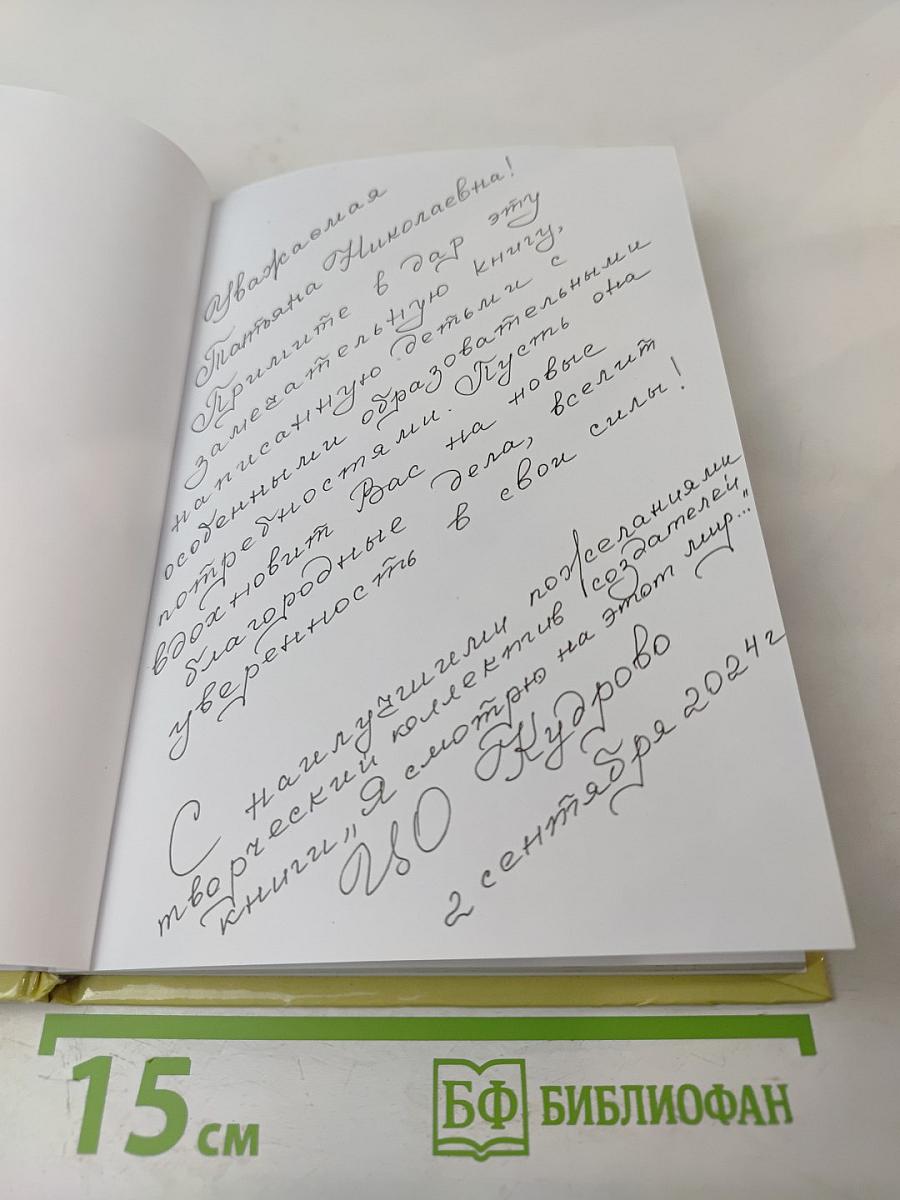 Уважаемая
Татьяна Николаевна!
Примите в дар эту
замечательную книгу,
написанную детьми с
особенными образовательными
потребностями. Пусть она
вдохновит Вас на новые
благородные дела, вселит
уверенность в свои силы!
С наилучшими пожеланиями
творческий коллектив создателей
книги „Я смотрю на этот мир..."
ЦО Кудрово
2 сентября 2024 г
15 см
БФ БИБЛИОФАН